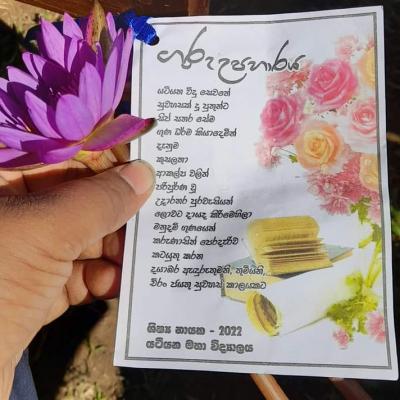 ගුරු උපහාරය
යටියන විදු සෙවනේ
සුවහසක් දූ පුතුන්ට
සිප් සතර සේම
ගුණ ධර්ම කියාදෙමින්
දැනුම
කුසලතා
ආකල්ප වලින්
පරිපූර්ණ වූ
උදාරතර පුරවැසියන්
ලොවට දායද කිරීමෙහිලා
මනුදම් ගුණයෙන්
කරුණාසින් පෙරදැරිව
කටයුතු කරන
දයාබර ඇදුරුතුමනි, තුමියනි,..
චිරං ජයතු සුවහස් කාලයකට
ශිෂ්‍ය නායක - 2022
යටියන මහා විද්‍යාලය